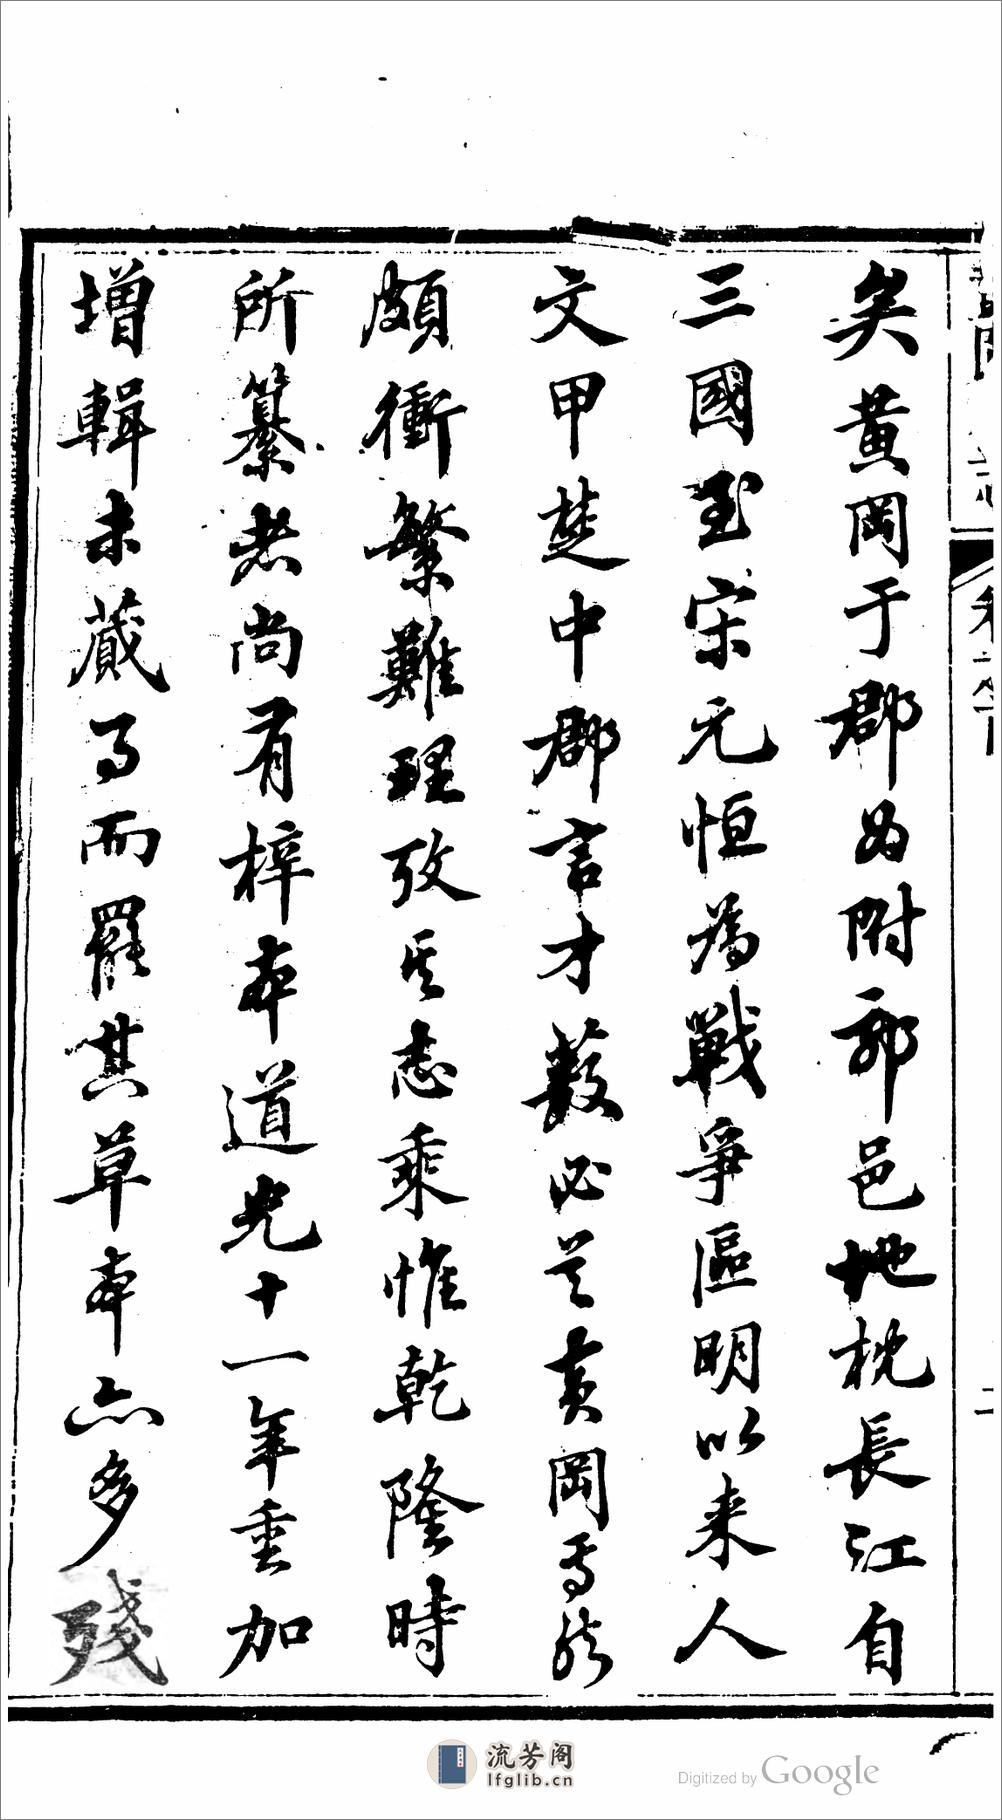 矣黄岡于郡為附郭邑地枕長江自
三國至宋元恒為戰爭區明以来人
文甲楚中郡言才藪必首黄岡焉然
頗衝繁難理攷其志乘惟乾隆時
所纂者尚有梓本道光十一年重加
增輯未蕆事而罷其草本亦多殘
流芳阁
lfglib.cn
Digitized by Google